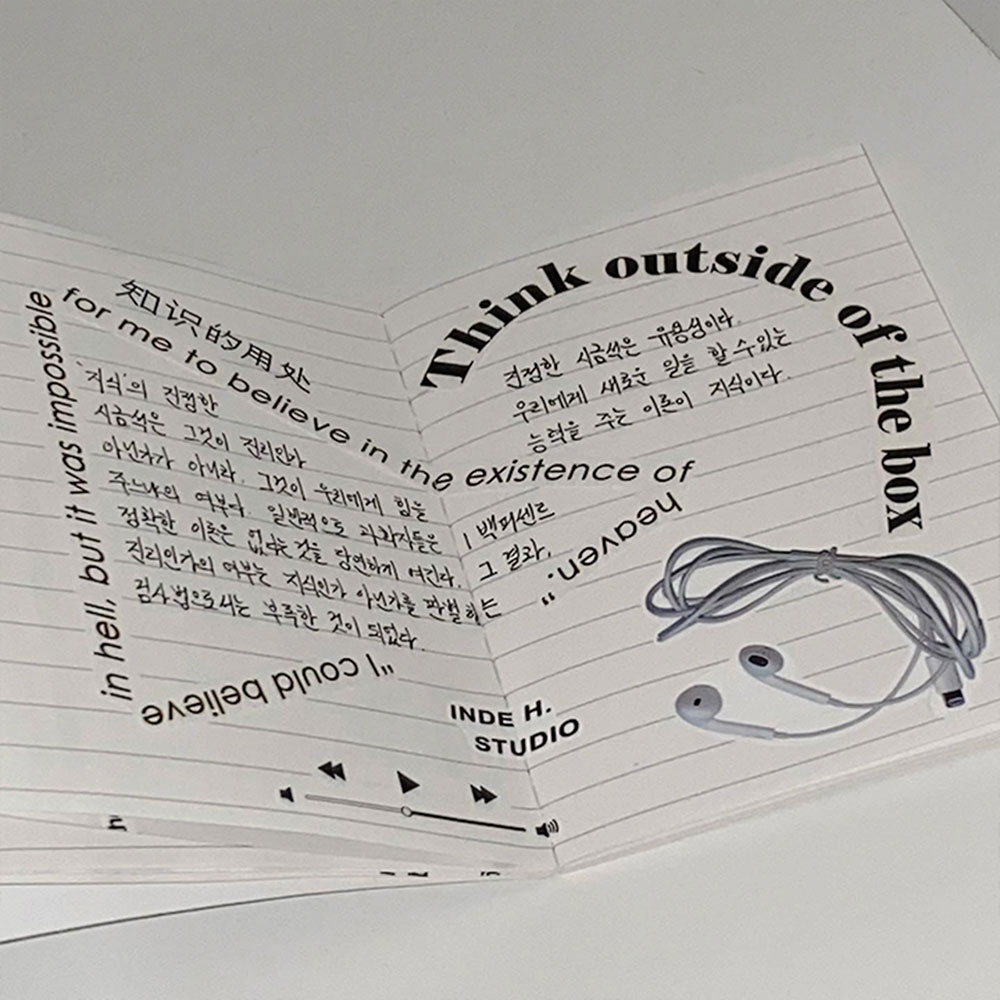 知识的用处
"I could believe
in hell, but it was impossible
for me to believe in the existence of
heaven."
'지식'의 진정한
시금석은 그것이 진리인가
아닌가가 아니라, 그것이 우리에게 힘을
주느냐의 여부다. 일반적으로 과학자들은 1백퍼센트
정확한 이론은 없다는 것을 당연하게 여긴다. 그 결과,
진리인가의 여부는 지식인가 아닌가를 판별하는
검사법으로서는 부족한 것이 되었다.
Think outside of the box
진정한 시금석은 유용성이다.
우리에게 새로운 일을 할 수 있는
능력을 주는 이론이 지식이다.
INDE H.
STUDIO